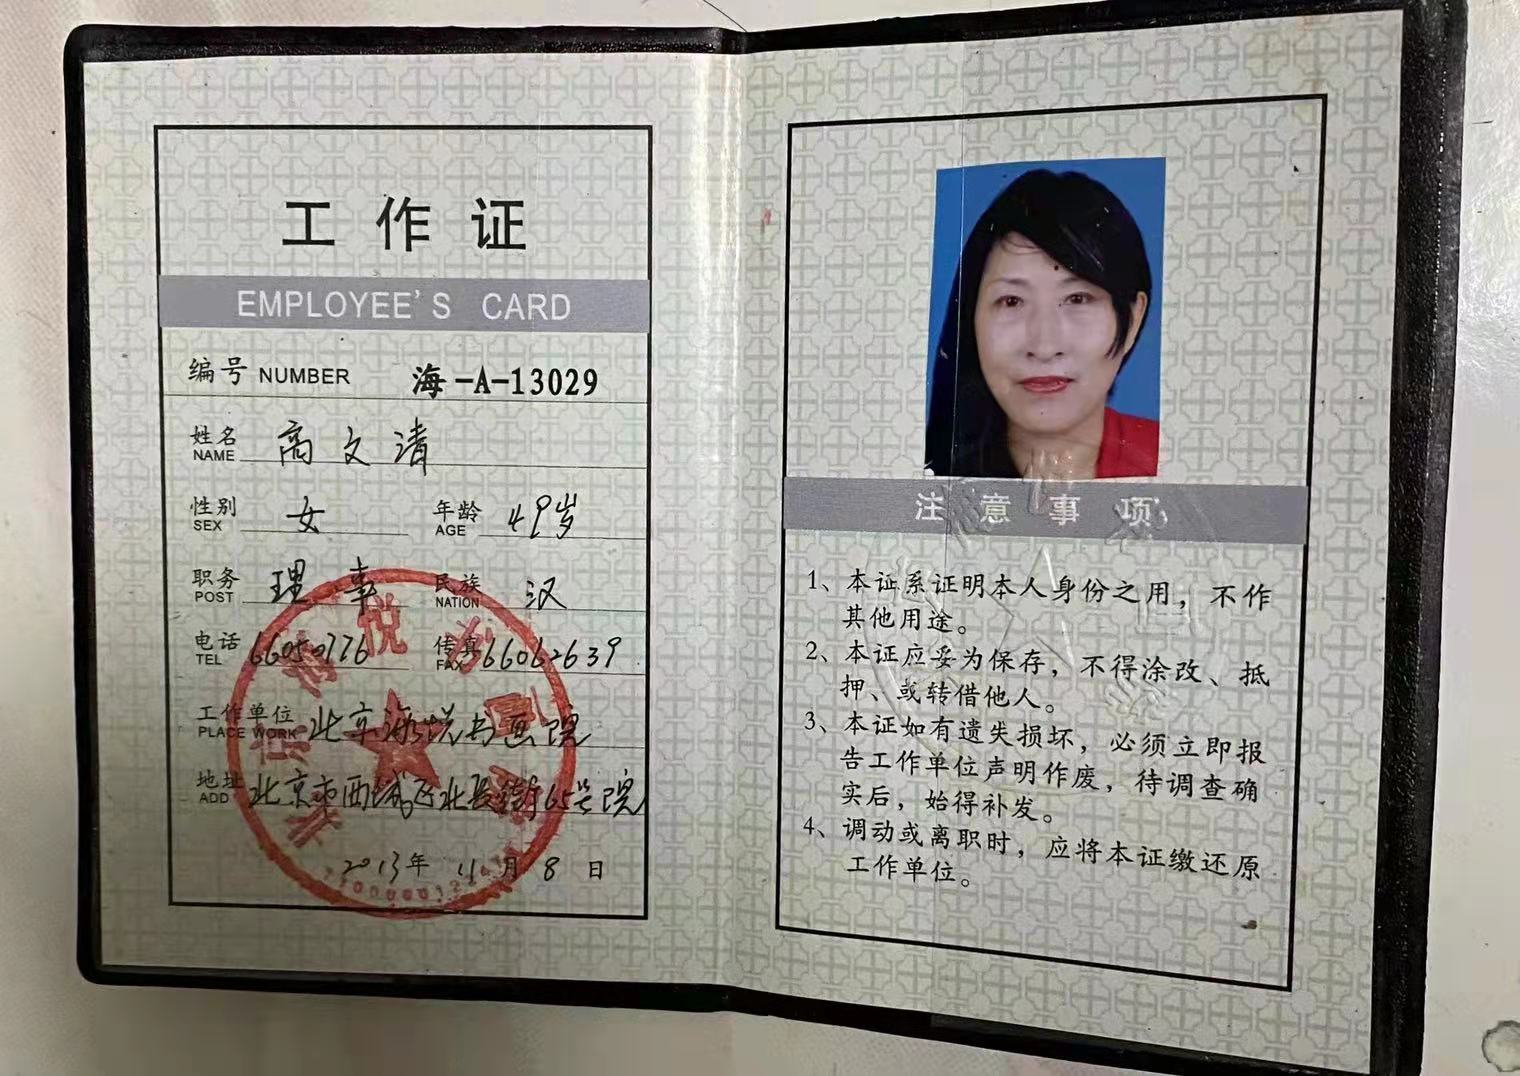 工作证
EMPLOYEE'S CARD
编号 NUMBER 海-A-13029
姓名 NAME 高文清
性别 SEX 女 年龄 AGE 49岁
职务 POST 理事 民族 NATION 汉
电话 TEL 66050776 传真 FAX 66062639
工作单位 PLACE WORK 北京海悦书画院
地址 ADD 北京市西城区北长街65号院
2013年 11月 8日
注意事项
1、本证系证明本人身份之用，不作
其他用途。
2、本证应妥为保存，不得涂改、抵
押、或转借他人。
3、本证如有遗失损坏，必须立即报
告工作单位声明作废，待调查确
实后，始得补发。
4、调动或离职时，应将本证缴还原
工作单位。